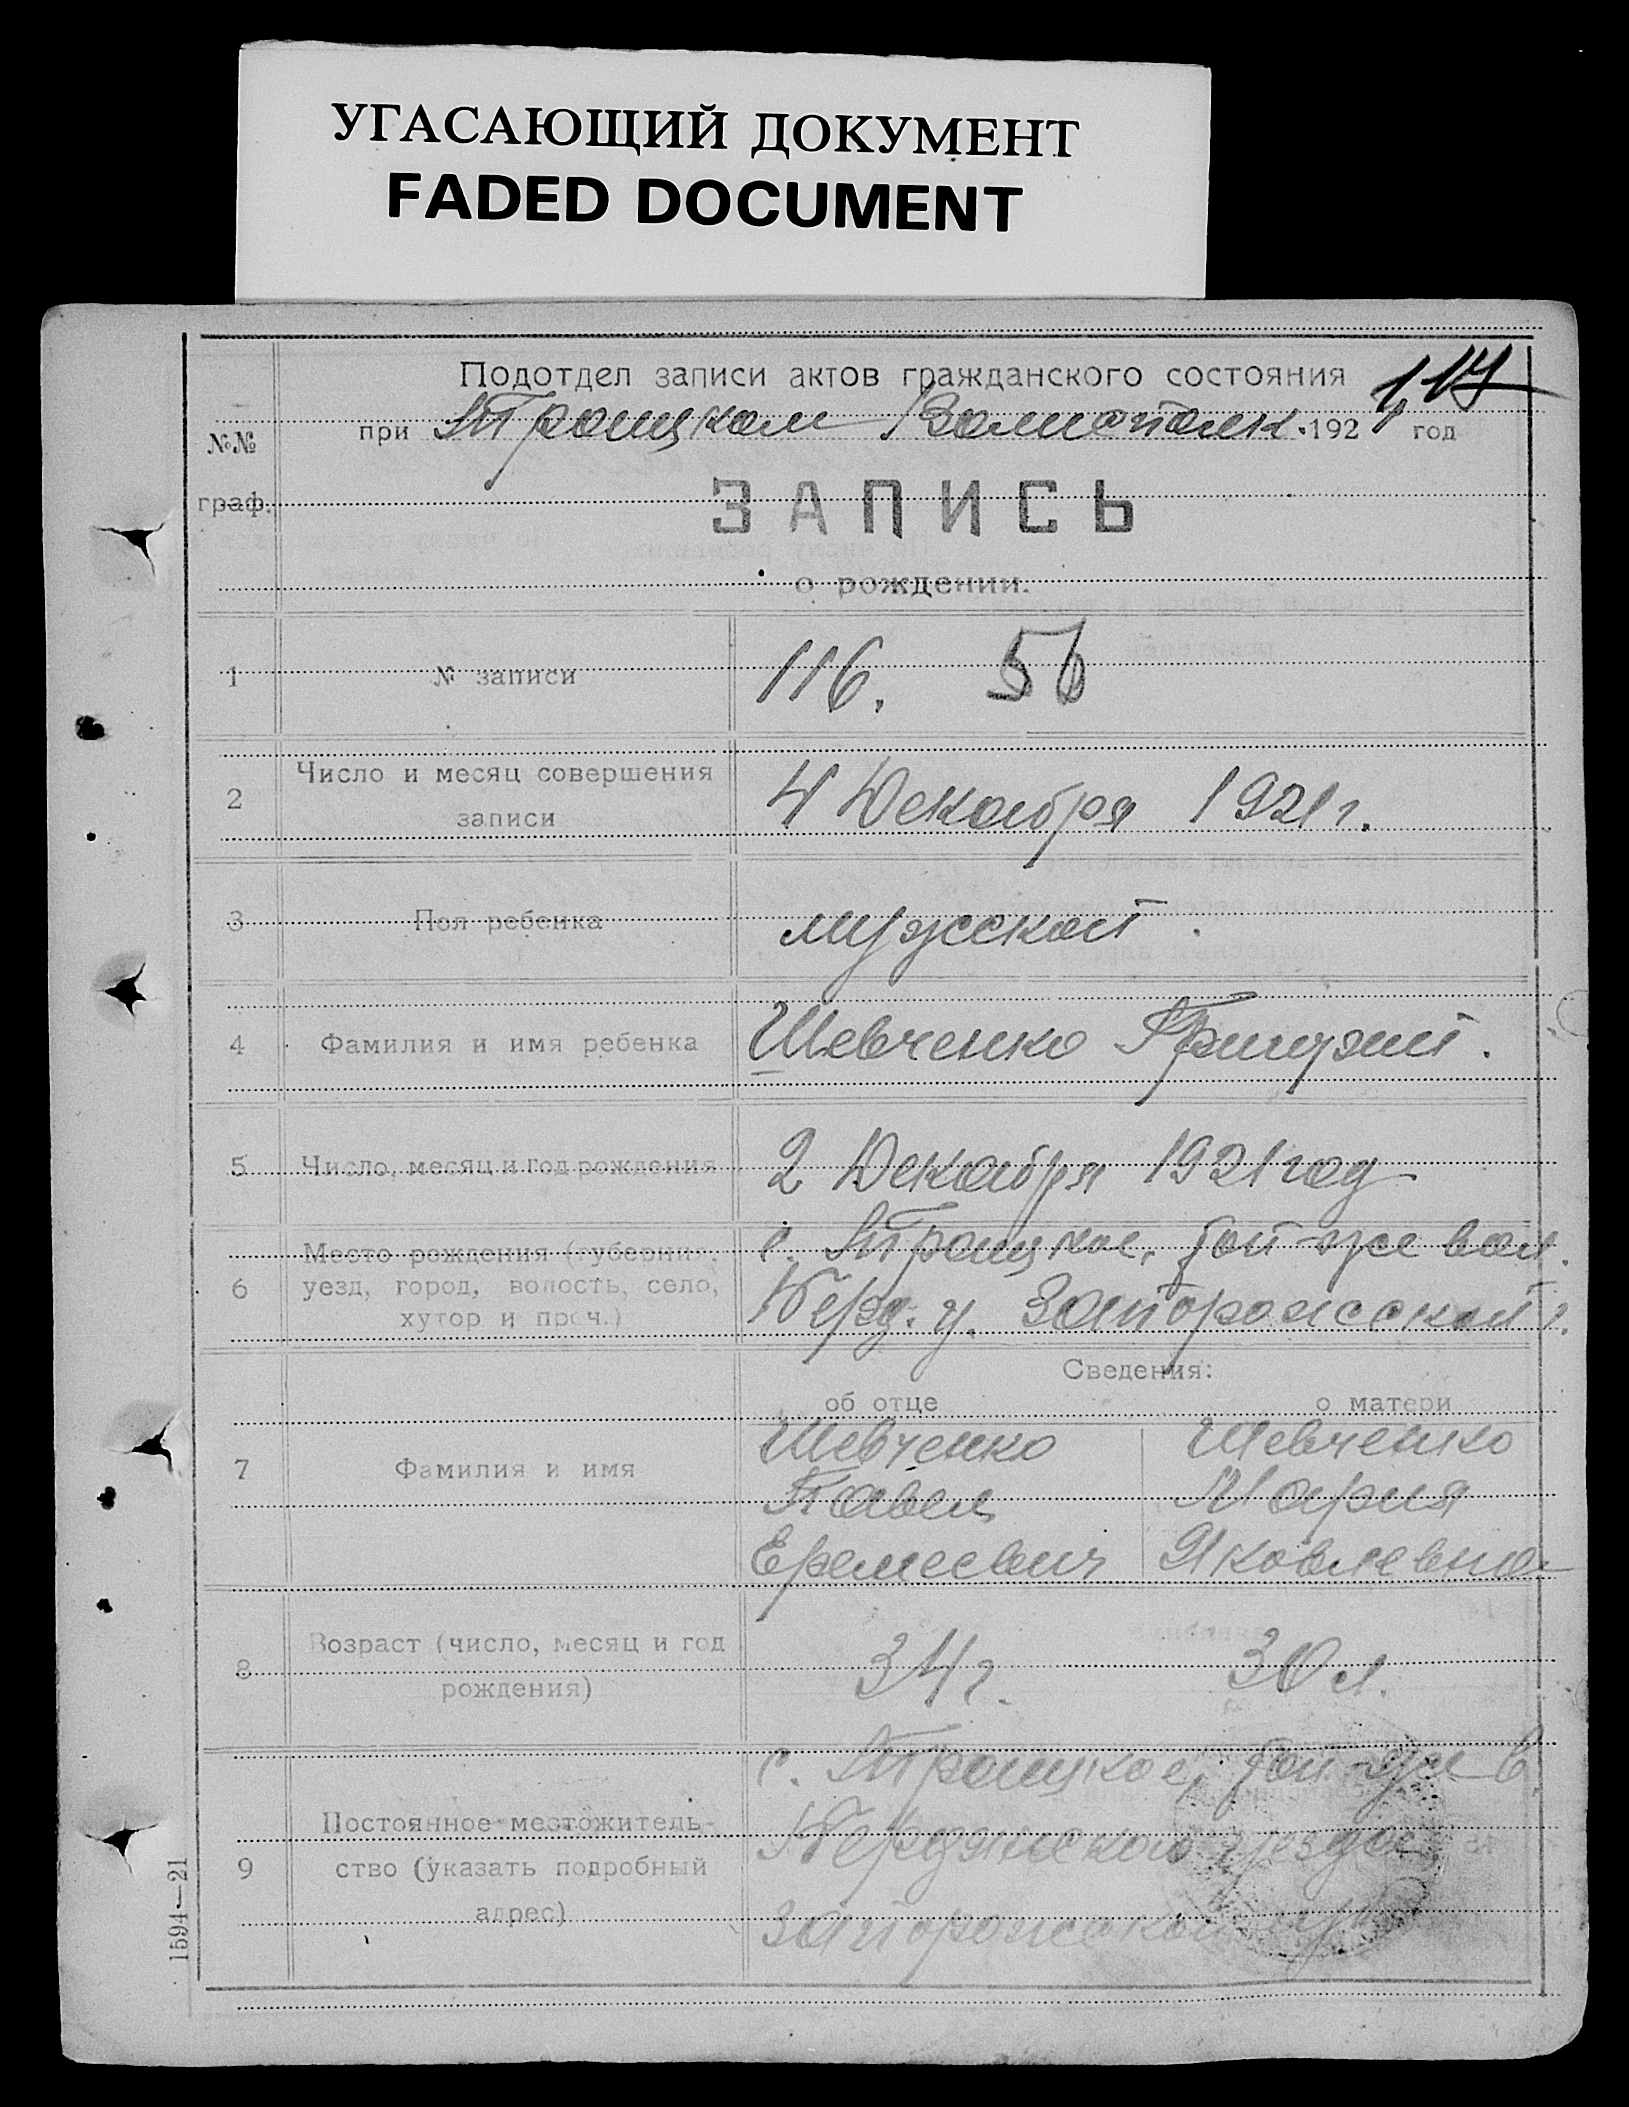 УГАСАЮЩИЙ ДОКУМЕНТ
FADED DOCUMENT
Подотдел записи актов гражданского состояния
117
при Троицком Волисполк. 1921 год
№№
граф.
ЗАПИСЬ
о рождении.
1 № записи 116. 56
2 Число и месяц совершения
записи
4 Декабря 1921 г.
3 Пол ребенка мужской.
4 Фамилия и имя ребенка Шевченко
5 Число, месяц и год рождения 2 Декабря 1921 год
6 Место рождения (губерния,
уезд, город, волость, село,
хутор и проч.)
с. Троицкое, той-же вол.
Берд. у. Запорожской г.
Сведения:
об отце о матери
7 Фамилия и имя
Шевченко Шевченко
Павел Мария
Еремеевич Яковлевна
8 Возраст (число, месяц и год
рождения)
34 г. 30 л.
9 Постоянное местожитель-
ство (указать подробный
адрес)
с. Троицкое, той-же в.
Бердянского уезда
Запорожской
1594—21